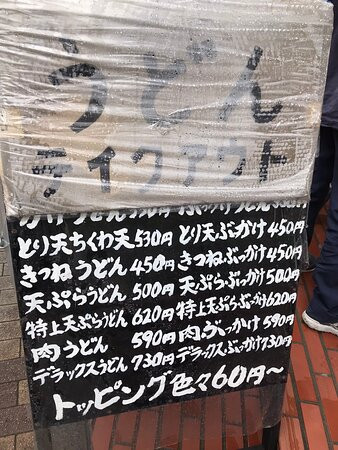 うどん
テイクアウト
とり天ちくわ天530円 とり天ぶっかけ450円
きつねうどん 450円 きつねぶっかけ450円
天ぷらうどん 500円 天ぷらぶっかけ500円
特上天ぷらうどん620円 特上天ぷらぶっかけ620円
肉うどん 590円 肉ぶっかけ 590円
デラックスうどん730円 デラックスぶっかけ730円
トッピング色々60円〜